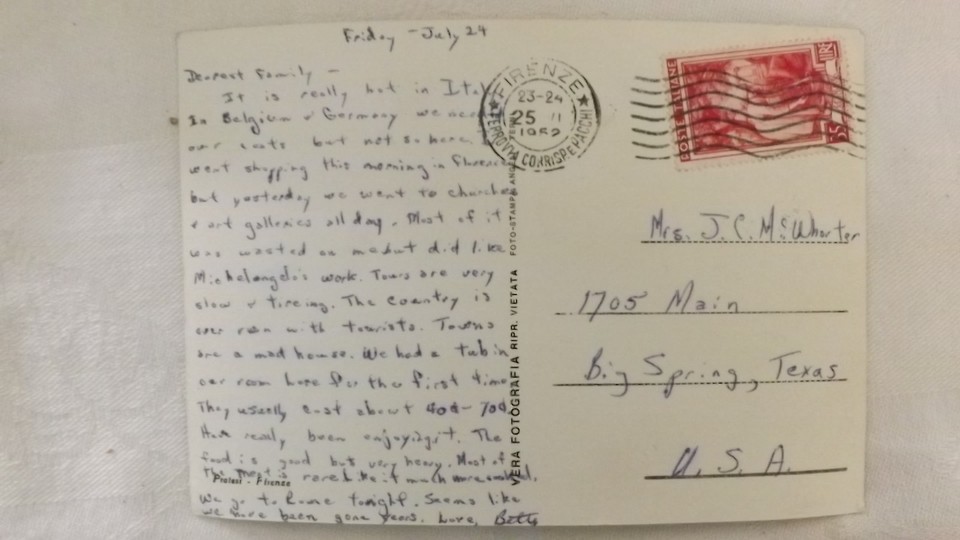 Friday - July 24
Dearest Family -
It is really hot in
In Belgium & Germany we
our coats but not so here.
went shopping this morning in Florence
but yesterday we went to churches
& art galleries all day. Most of it
was wasted on me but did like
Michelangelo's work. Tours are very
slow & tireing. The country is
over run with tourists. Towns
are a mad house. We had a tub in
our room here for the first time
They usually cost about 40¢ - 70¢
Have really been enjoying it. The
food is good but very heavy. Most of
The meat is rare like it much more cooked.
Protasi - Firenze
We go to Rome tonight. Seems like
we have been gone years. Love, Betty
VERA FOTOGRAFIA RIPR. VIETATA FOTO-STAMPA
FIRENZE
23-24
25
1952
FERROVIA CORRISP E PACCHI
POSTE ITALIANE
LIRE
Mrs. J. C. McWhorter
1705 Main
Big Spring, Texas
U. S. A.